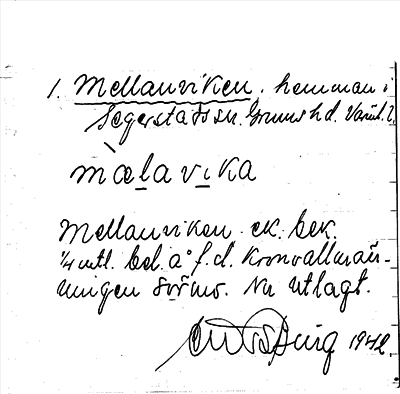 1. Mellanviken. hemman i
Segerstads sn. Grums hd. Värml. l.
mælavika
Mellanviken ek. bek.
1/4 mtl. bel. å f.d. Kronoallmän-
ningen Sörmo. Nu utlagt.
1942.